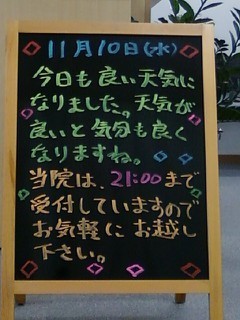 11月10日(水)
今日も良い天気に
なりました。天気が
良いと気分も良く
なりますね。
当院は、21:00まで
受付していますので
お気軽にお越し
下さい。